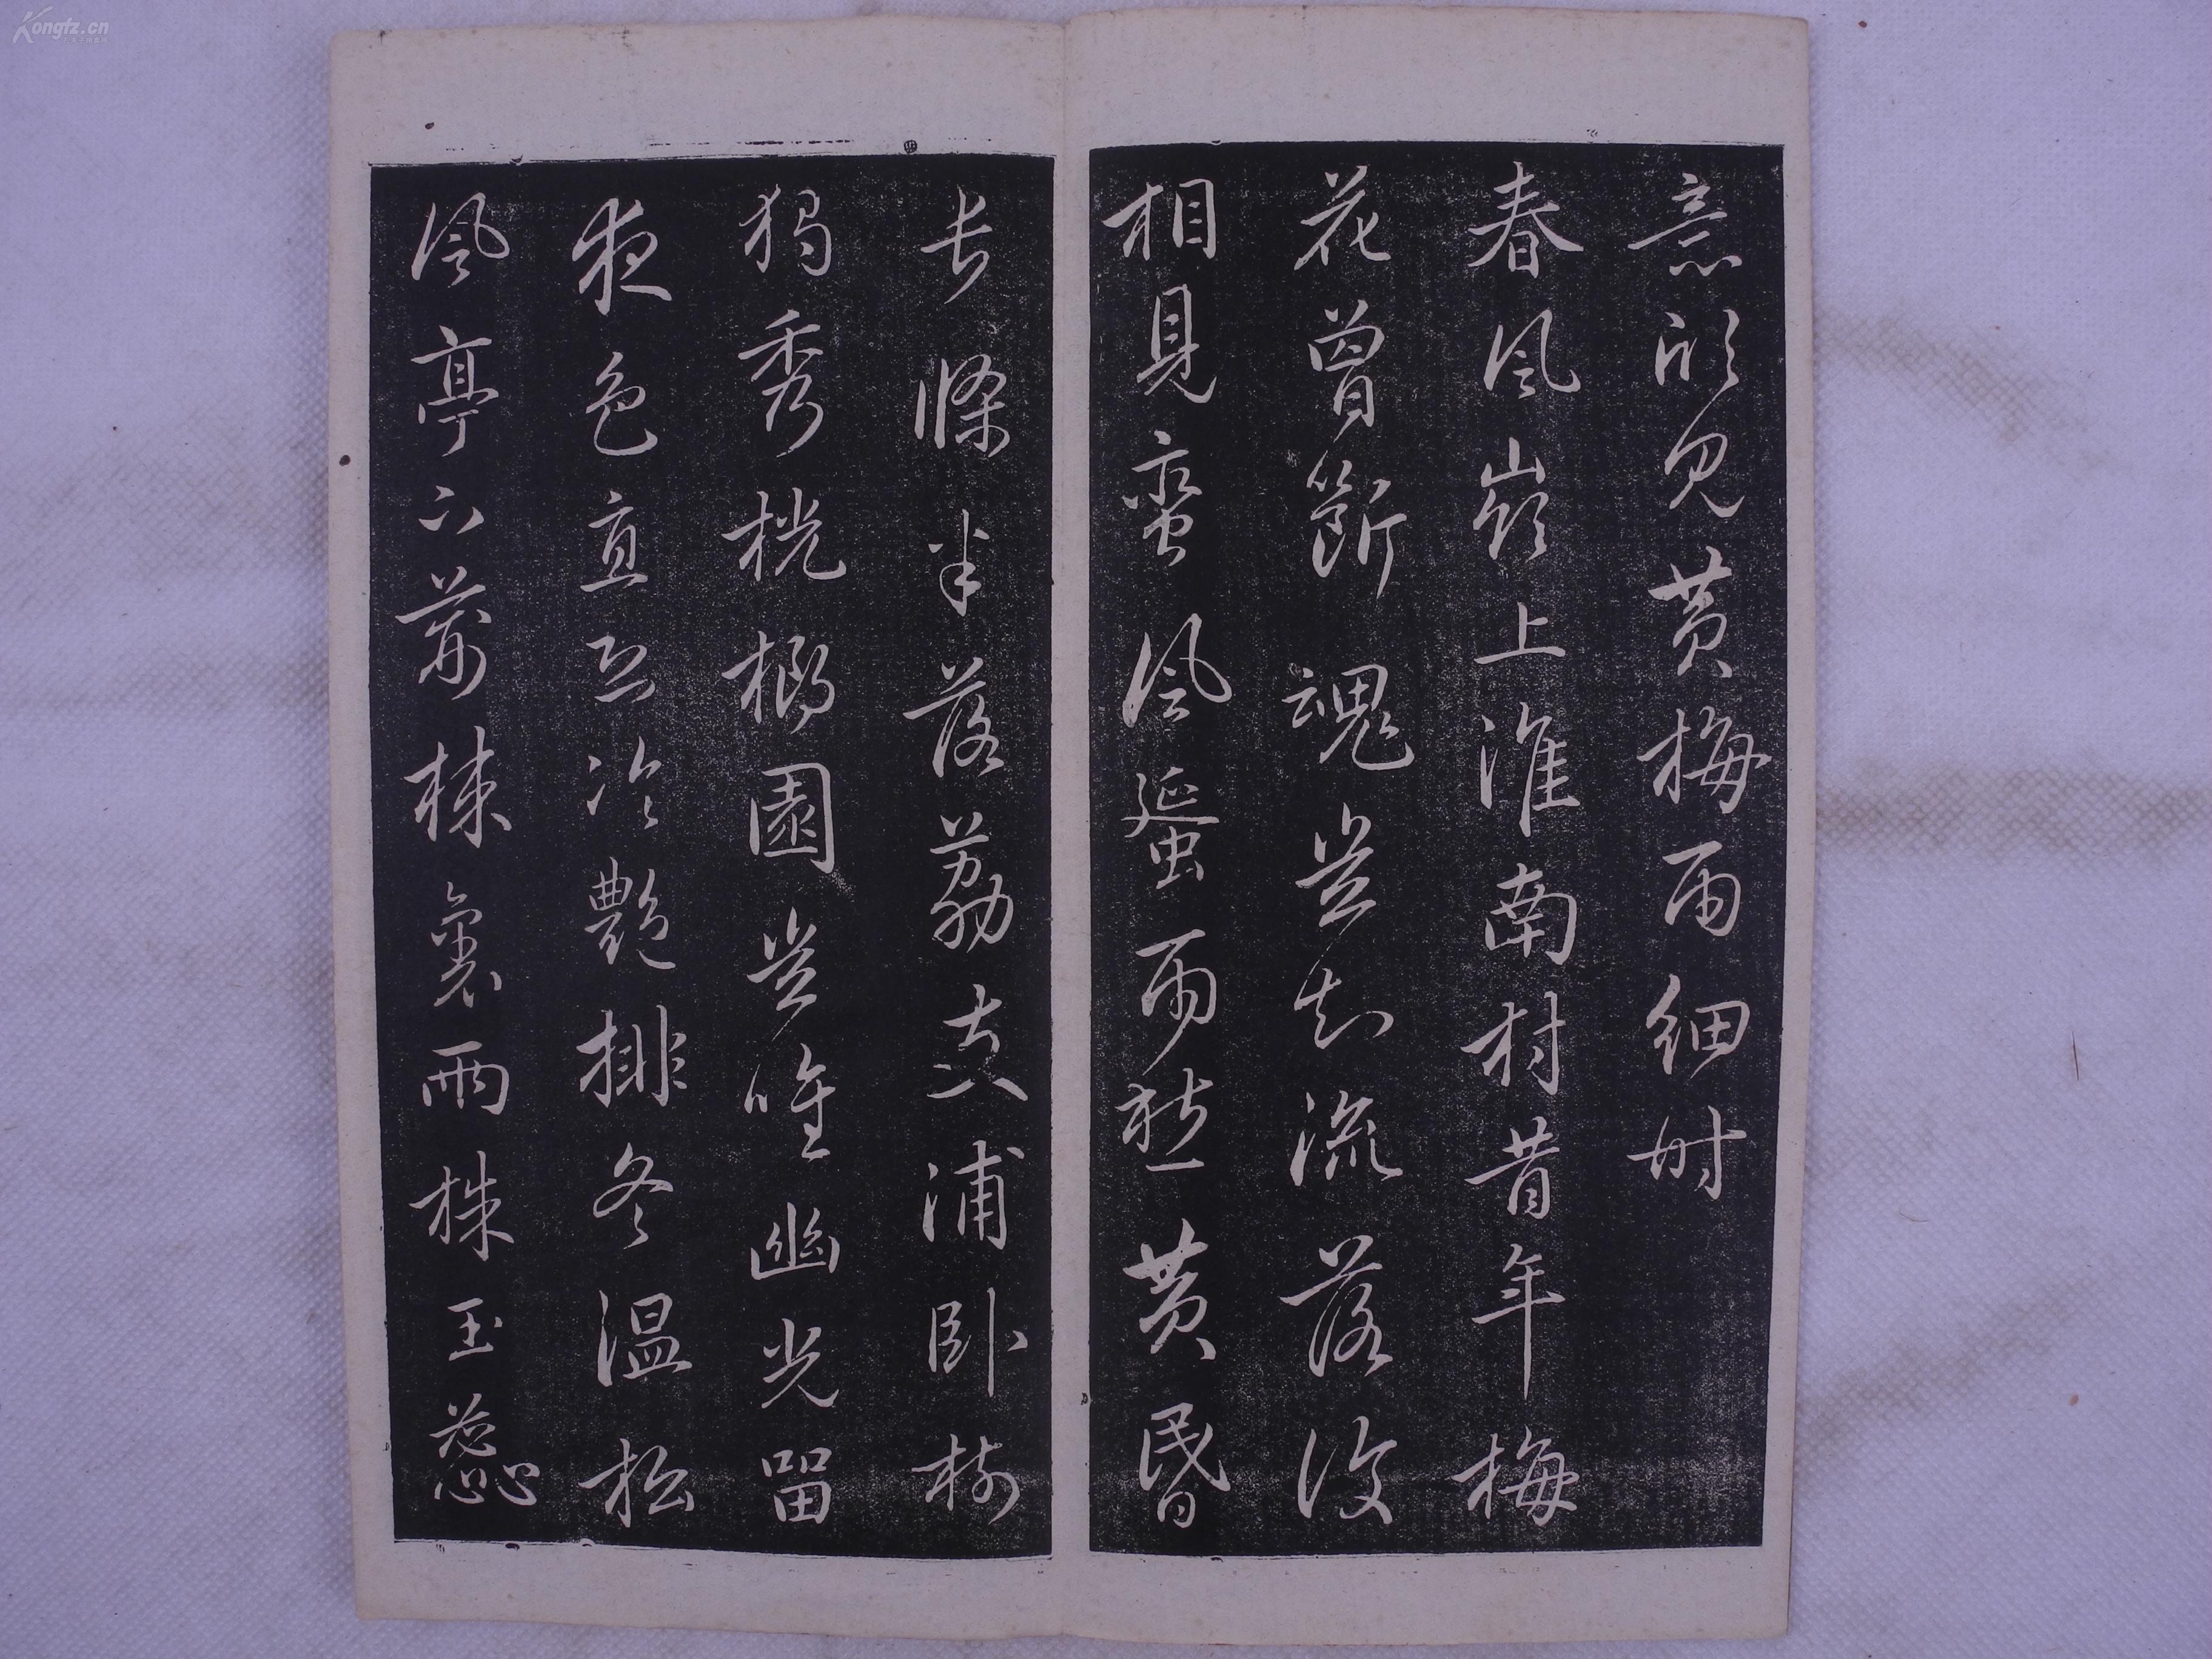 意欲見黃梅雨細時
春風嶺上淮南村昔年梅
花曾斷魂豈知流落復
相見蠻風蜑雨愁黃昏
長條半落荔支浦臥樹
獨秀桄榔園豈唯幽光留
夜色直恐冷艷排冬溫松
風亭下荊棘裏兩株玉蕊
Kongfz.cn